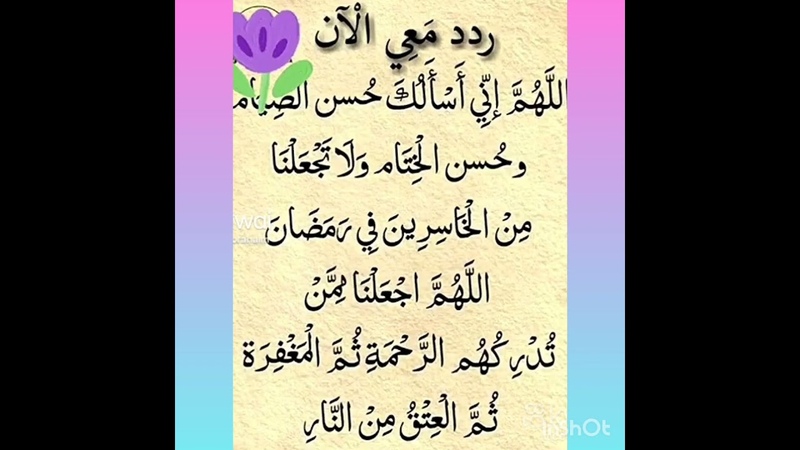 ردد مَعِي الْآن
اللَّهُمَّ إِنِّي أَسْأَلُكَ حُسن الصِّيَام
وحُسن الْخِتَام وَلَا تَجْعَلْنَا
مِنْ الْخَاسِرِينَ فِي رَمَضَانَ
اللَّهُمَّ اجْعَلْنَا مِمَّنْ
تُدْرِكُهُم الرَّحْمَةِ ثُمَّ الْمَغْفِرَة
ثُمَّ الْعِتْقُ مِنْ النَّارِ